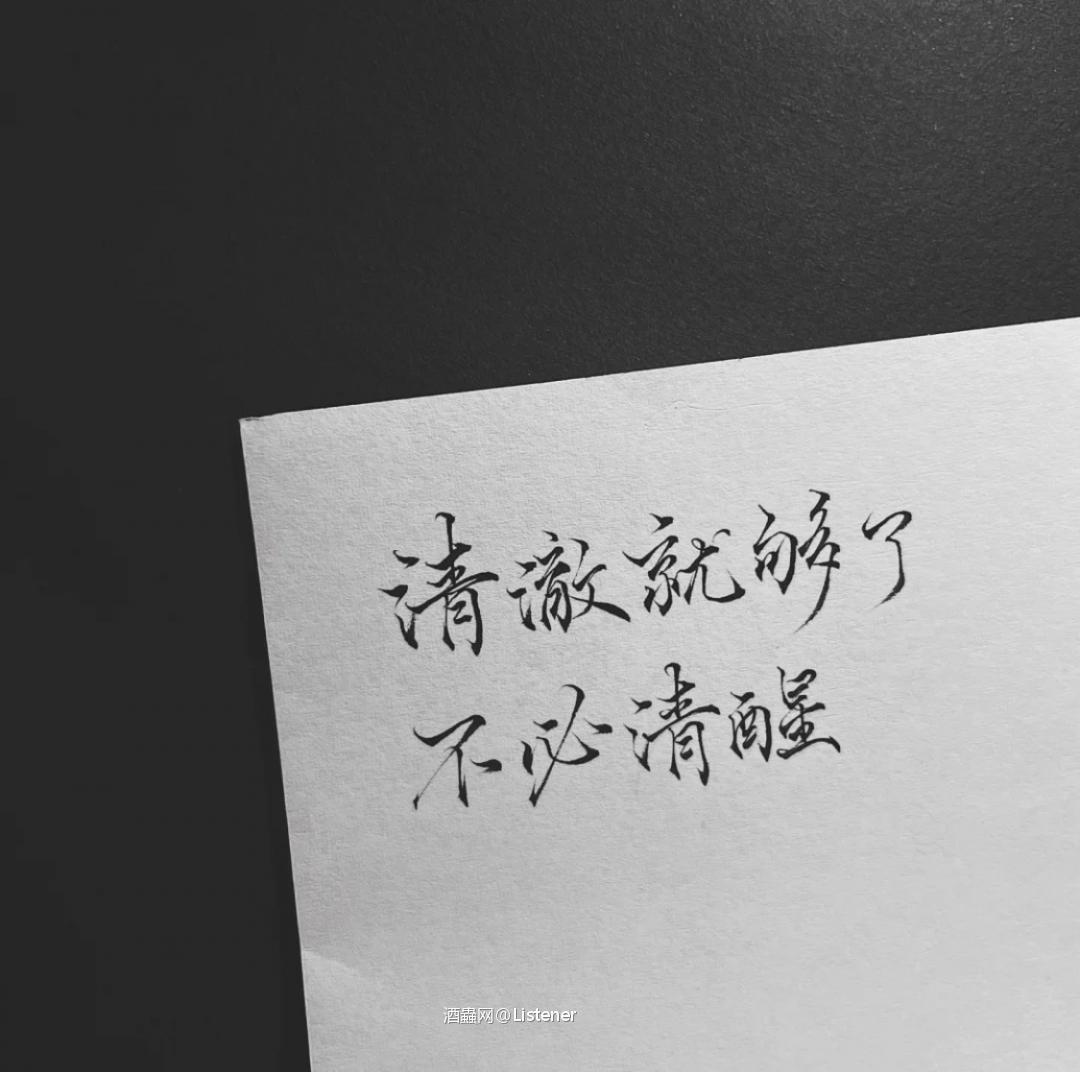 清澈就够了
不必清醒
酒蟲网@Listener